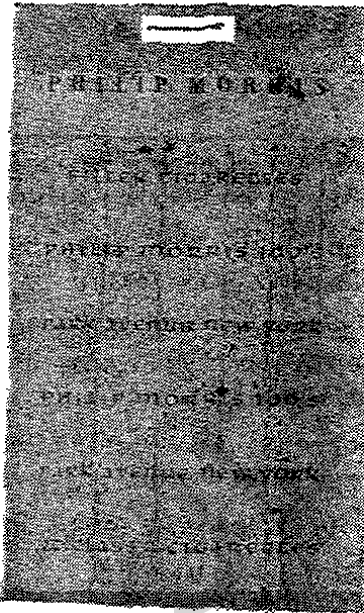 PHILIP MORRIS
FILTER CIGARETTES
PHILIP MORRIS 100's
Park Avenue New York
PHILIP MORRIS 100's
Park Avenue New York
CIGARETTES